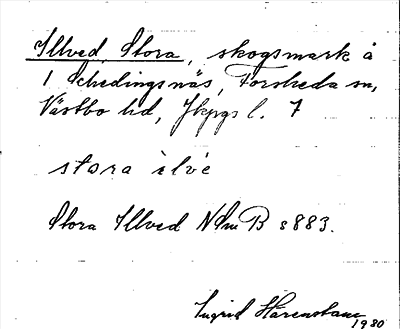 Illved, Stora, skogsmark å
1 Schedingsnäs, Forsheda sn,
Västbo hd, Jkpgs l. 7
stora ìlvé
Stora Illved NSmB s 883.
Ingrid Härenstam
1980